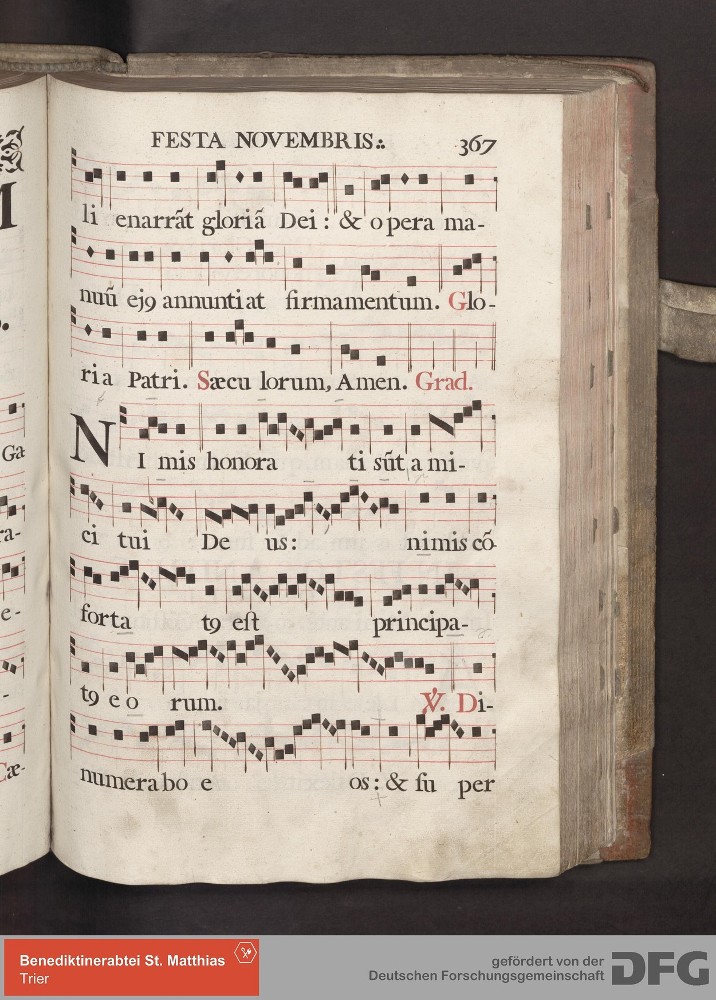 FESTA NOVEMBRIS:. 367
li enarrãt gloriã Dei : & opera ma-
nuũ ejꝯ annuntiat firmamentum. Glo-
ria Patri. Sæcu lorum, Amen. Grad.
NI mis honora ti sũt a mi-
ci tui De us: nimis cõ-
forta tꝯ est principa-
tꝯ e o rum. ℣. Di-
numera bo e os: & su per
M
Gæ
ra-
e-
Cæ-
Benediktinerabtei St. Matthias
Trier
gefördert von der
Deutschen Forschungsgemeinschaft DFG